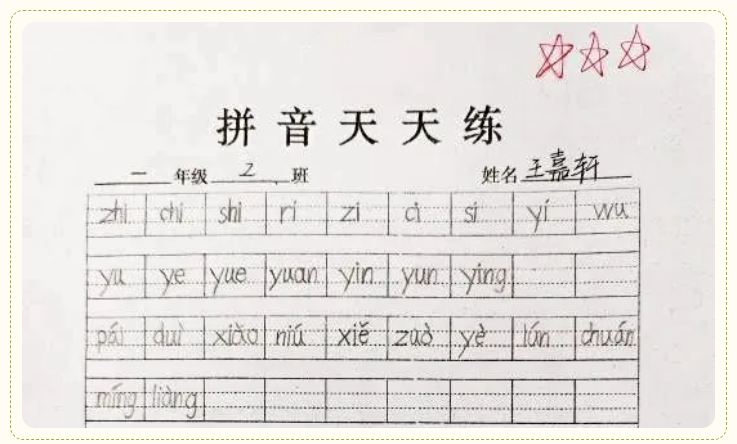 拼音天天练
一年级 2 班 姓名 王嘉轩
zhi chi shi ri zi ci si yi wu
yu ye yue yuan yin yun ying
pái duì xiǎo niú xiě zuò yè lún chuán
míng liàng